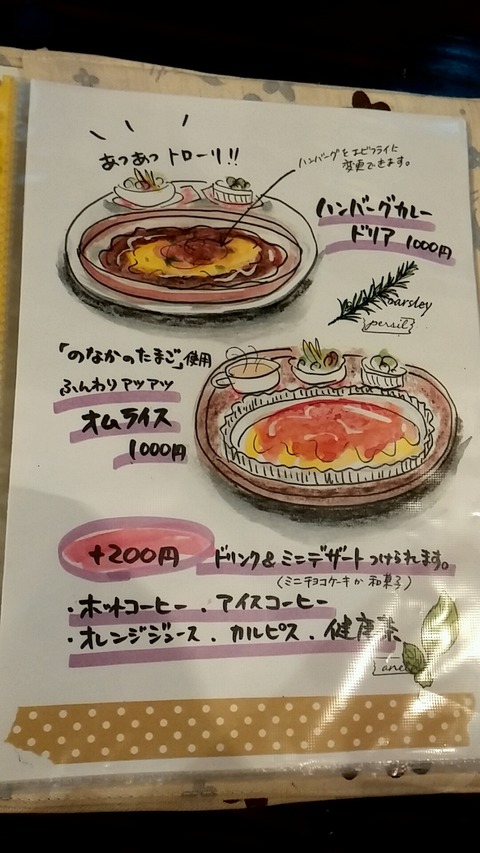 あつあつ トローリ!!
ハンバーグをエビフライに
変更できます。
ハンバーグカレー
ドリア 1000円
parsley
persil
「のなかのたまご」使用
ふんわりアツアツ
オムライス
1000円
+200円 ドリンク&ミニデザートつけられます。
(ミニチョコケーキか和菓子)
・ホットコーヒー . アイスコーヒー
・オレンジジュース . カルピス . 健康茶